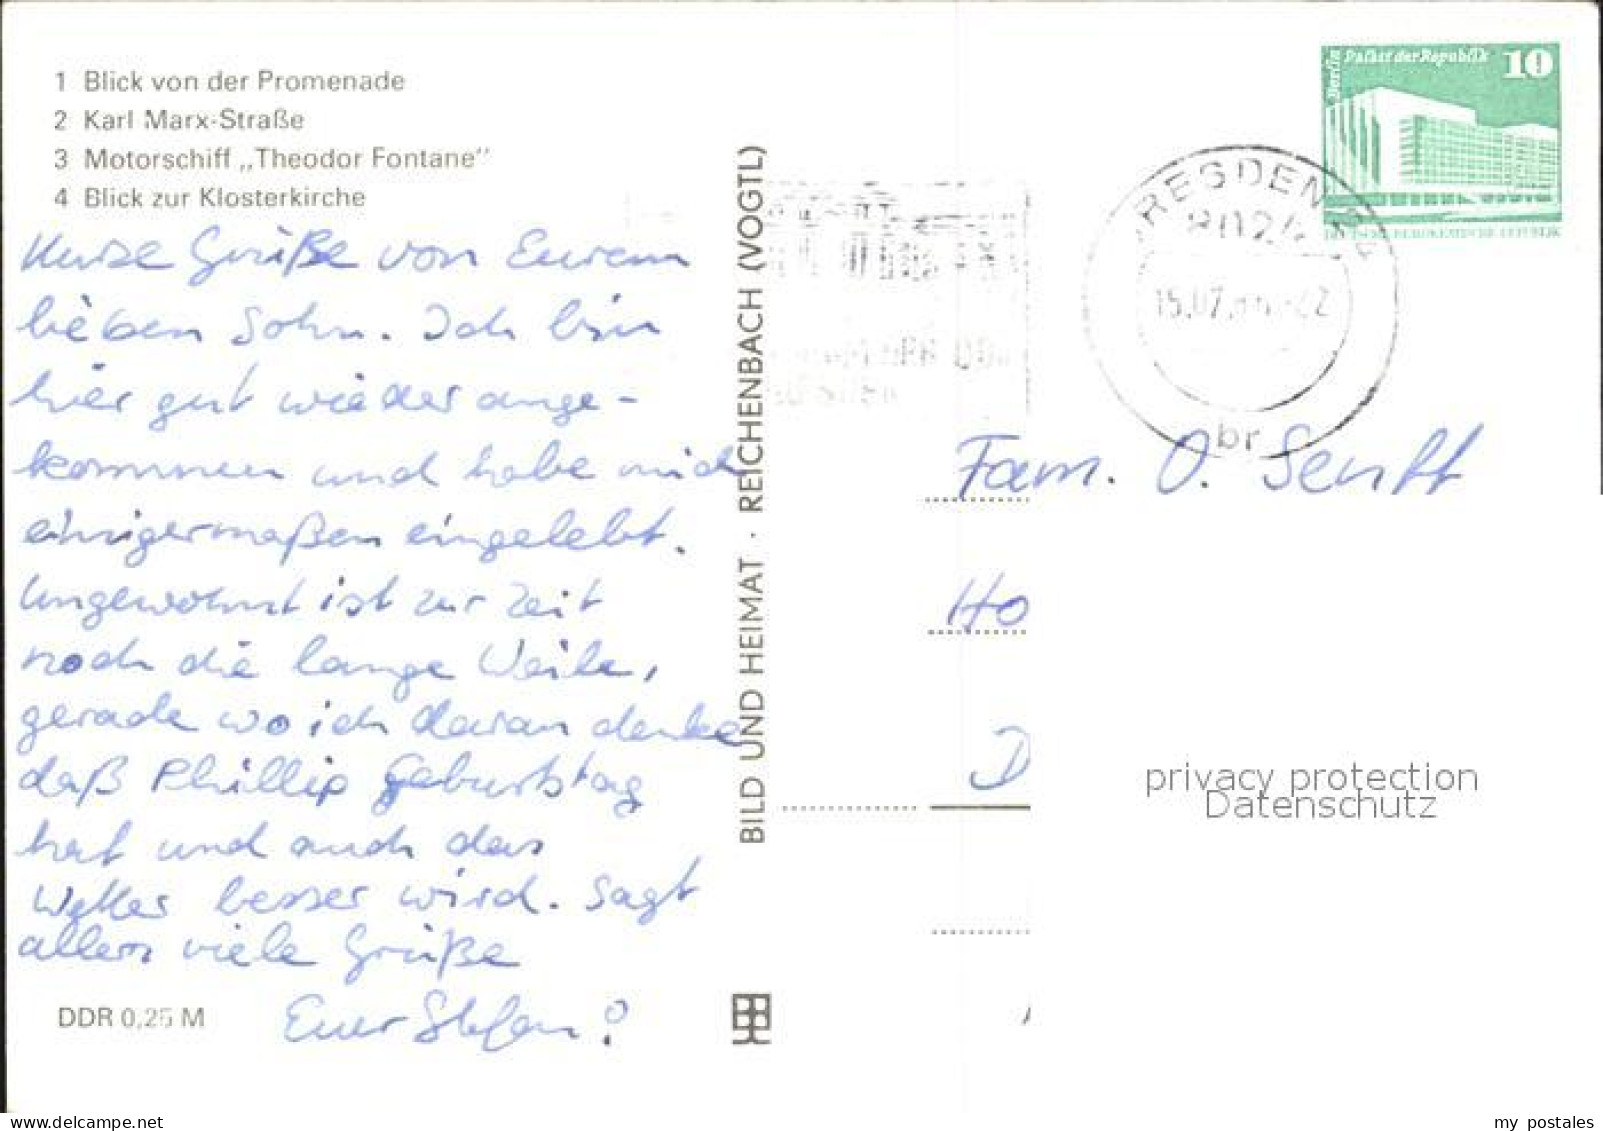 1 Blick von der Promenade
2 Karl Marx-Straße
3 Motorschiff „Theodor Fontane"
4 Blick zur Klosterkirche
Kurze Grüße von Eurem
lieben Sohn. Ich bin
hier gut wieder ange-
kommen und habe mich
einigermaßen eingelebt.
Ungewohnt ist zur Zeit
noch die lange Weile,
gerade wo ich daran denke
daß Phillip Geburtstag
hat und auch das
Wetter besser wird. Sagt
allen viele Grüße
Euer Stefan
DDR 0,25 M
BILD UND HEIMAT · REICHENBACH (VOGTL)
Berlin Palast der Republik 10
DRESDEN
15.07.
br
Fam. O. Senft
Ho
D
privacy protection
Datenschutz
my postales